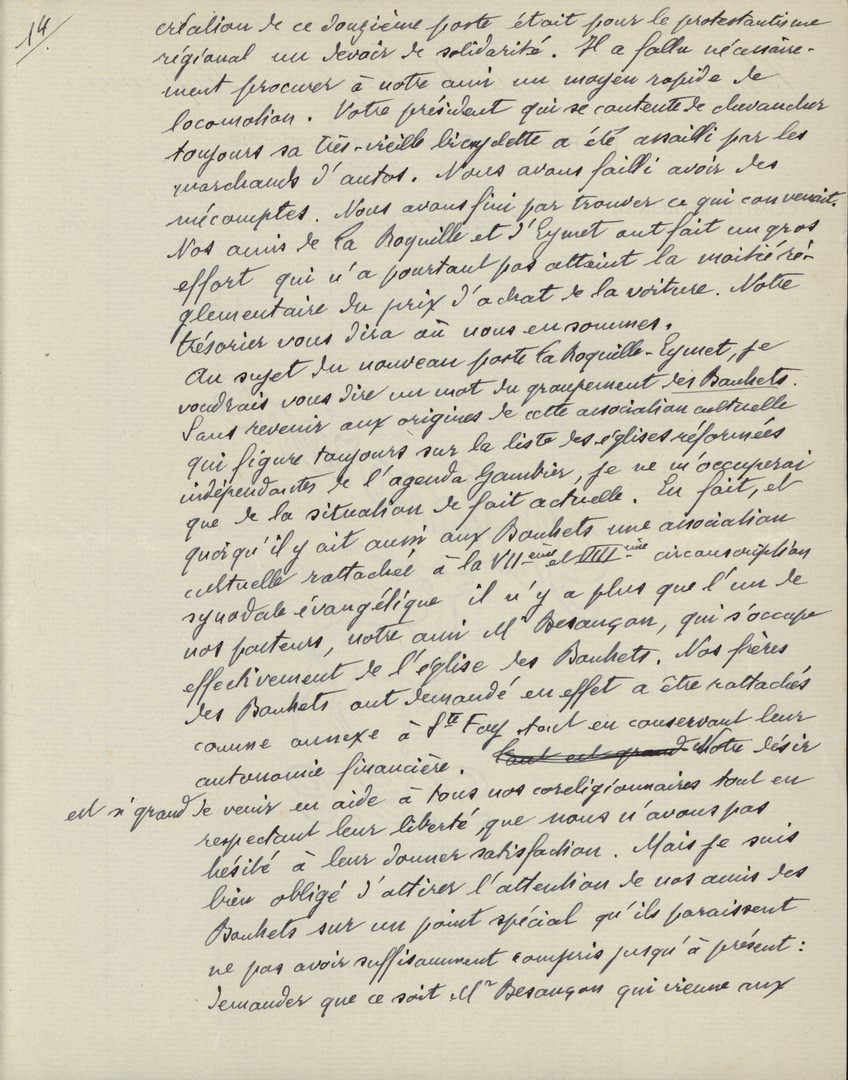 14/
création de ce douzième poste était pour le protestantisme
régional un devoir de solidarité. Il a fallu nécessaire-
ment procurer à notre ami un moyen rapide de
locomotion. Votre président qui se contente de chevaucher
toujours sa très-vieille bicyclette a été assailli par les
marchands d'autos. Nous avons failli avoir des
mécomptes. Nous avons fini par trouver ce qui convenait.
Nos amis de La Roquille et d'Eymet ont fait un gros
effort qui n'a pourtant pas atteint la moitié ré-
glementaire du prix d'achat de la voiture. Notre
trésorier vous dira où nous en sommes.
Au sujet du nouveau poste La Roquille-Eymet, je
voudrais vous dire un mot du groupement des Bouhets.
Sans revenir aux origines de cette association cultuelle
qui figure toujours sur la liste des églises réformées
indépendantes de l'agenda Gambier, je ne m'occuperai
que de la situation de fait actuelle. En fait, et
quoiqu'il y ait aussi aux Bouhets une association
cultuelle rattachée à la VIIème et VIIIème circonscription
synodale évangélique il n'y a plus que l'un de
nos pasteurs, notre ami Mr Besançon, qui s'occupe
effectivement de l'église des Bouhets. Nos frères
des Bouhets ont demandé en effet a être rattachés
comme annexe à Ste Foy tout en conservant leur
autonomie financière. Tout est grand Notre désir
est si grand de venir en aide à tous nos coreligionnaires tout en
respectant leur liberté, que nous n'avons pas
hésité à leur donner satisfaction. Mais je suis
bien obligé d'attirer l'attention de nos amis des
Bouhets sur un point spécial qu'ils paraissent
ne pas avoir suffisamment compris jusqu'à présent :
demander que ce soit Mr Besançon qui vienne aux